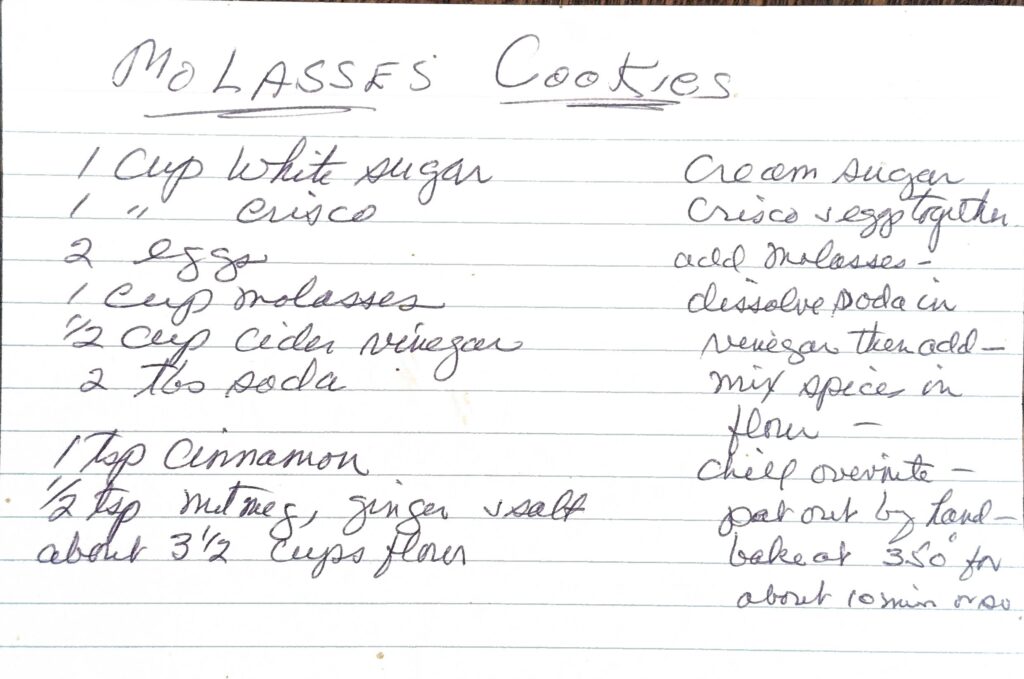 MOLASSES Cookies
1 Cup White sugar
1 " Crisco
2 eggs
1 Cup molasses
1/2 Cup Cider vinegar
2 tbs soda
1 tsp Cinnamon
1/2 tsp nutmeg, ginger & salt
about 3 1/2 Cups flour
Cream sugar
Crisco & eggs together
add molasses -
dissolve soda in
vinegar then add -
mix spices in
flour -
chill overnite -
pat out by hand -
bake at 350° for
about 10 min or so.